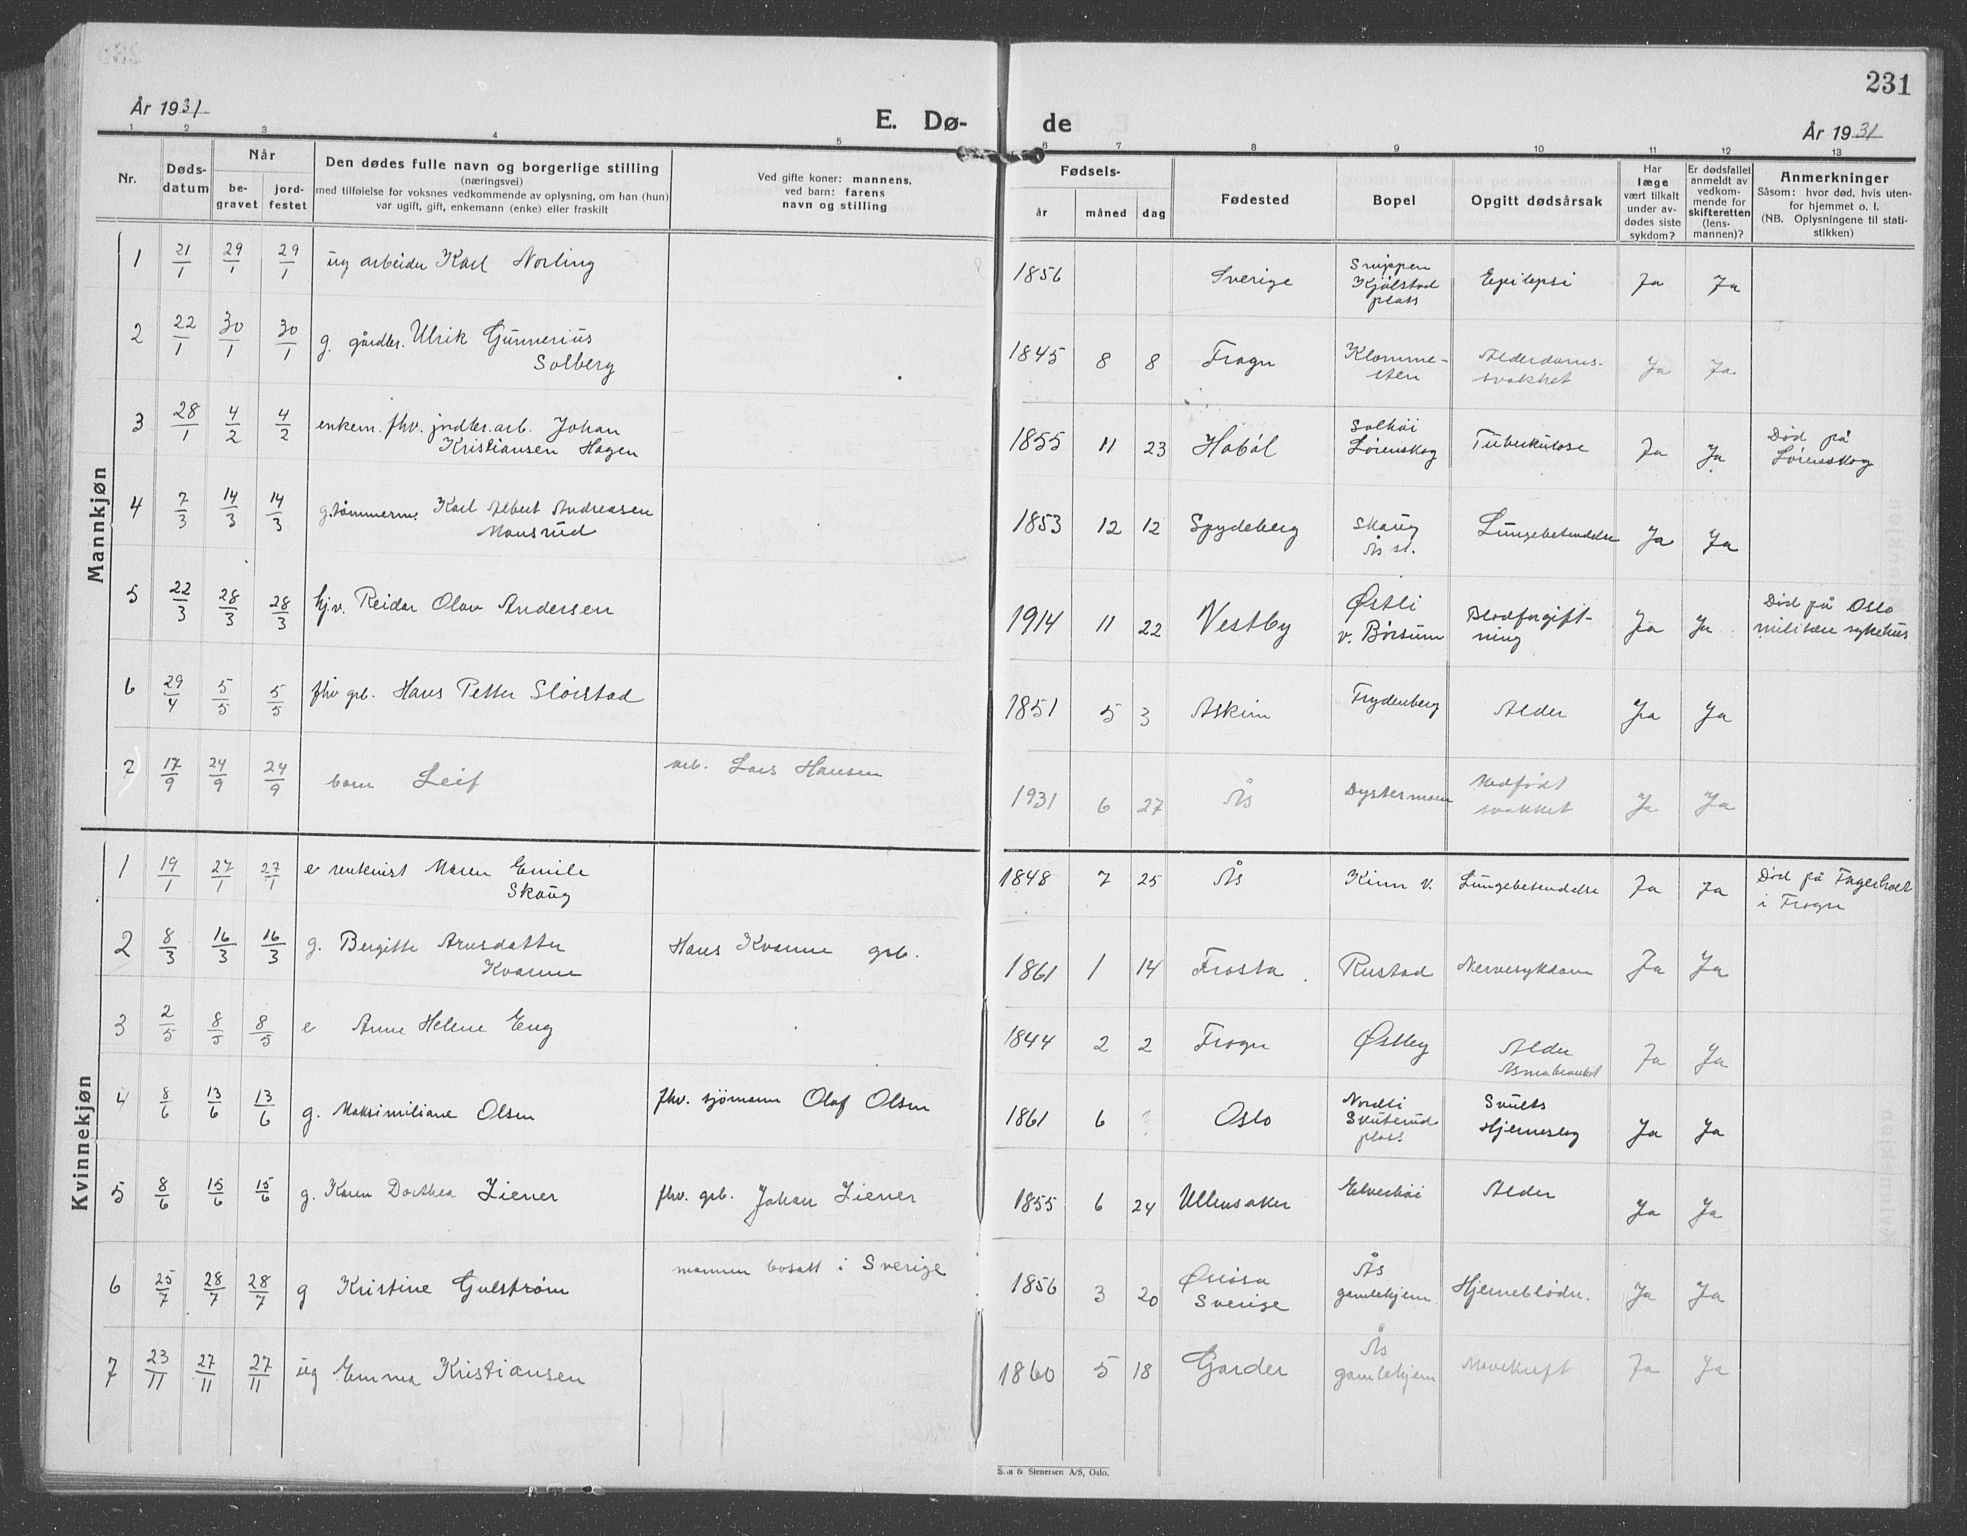 231
År 1931
E. Dø-
de
År 1931
1 2 3 4 5 6 7 8 9 10 11 12 13
Nr.
Døds-
datum
Når
be-
gravet
jord-
festet
Den dødes fulle navn og borgerlige stilling
(næringsvei)
med tilføielse for voksnes vedkommende av oplysning, om han (hun)
var ugift, gift, enkemann (enke) eller fraskilt
Ved gifte koner: mannens,
ved barn: farens
navn og stilling
Fødsels-
år måned dag
Fødested
Bopel
Opgitt dødsårsak
Har
læge
vært tilkalt
under av-
dødes siste
sykdom?
Er dødsfallet
anmeldt av
vedkom-
mende for
skifteretten
(lens-
mannen)?
Anmerkninger
Såsom: hvor død, hvis uten-
for hjemmet o. l.
(NB. Oplysningene til stati-
stikken)
Mannkjøn
1 21/1 29/1 29/1 ug arbeider Karl Norling 1856 Sverige
Kjølstad
plass
Epilepsi Ja Ja
2 22/1 30/1 30/1 g. gårdbr. Ulrik Gunnerius
Solberg
1845 8 8 Frogn Klomme-
sten
Alderdoms-
svakhet
Ja Ja
3 28/1 4/2 4/2 enkem. fhv. jrdbr. arb. Johan
Kristiansen Hagen
1855 11 23 Hobøl Solhøi
Lørenskog
Tuberkulose Ja Ja Død på
Lørenskog
4 7/3 14/3 14/3 g. tømmerm. Karl Albert Andreasen
Monsrud
1853 12 12 Spydeberg Skaug
Ås st.
Lungebetendelse Ja Ja
5 22/3 28/3 28/3 hj.v. Reidar Olav Andersen 1914 11 22 Vestby Østli
v. Børsum
Blodforgift-
ning
Ja Ja Død på Oslo
militære sykehus
6 29/4 5/5 5/5 fhv grb. Hans Petter Sloistad 1851 5 3 Askim Frydenberg Alder Ja Ja
7 17/9 24/9 24/9 barn Leif arb. Lars Hansen 1931 6 27 Ås Dystermoen Medfødt
svakhet
Ja Ja
Kvinnekjøn
1 19/1 27/1 27/1 e rentenist Maren Emile
Skaug
1848 7 25 Ås Kinn v. Lungebetendelse Ja Ja Død på Fagerholt
i Frogn
2 8/3 16/3 16/3 g. Bergitte Arnsdatter
Kvamme
Hans Kvamme grb. 1861 1 14 Frosta Rustad Nervesykdom Ja Ja
3 2/5 8/5 8/5 e Anne Helene Eng 1844 2 2 Frogn Østby Alder
Ja Ja
4 8/6 13/6 13/6 g. Maksimiliane Olsen fhv. sjømann Olaf Olsen 1861 6 ? Oslo Nordli
Skuterud
plass
Svulst
Hjerneslag
Ja Ja
5 8/6 15/6 15/6 g. Karen Dorthea Ziener fhv. grb. Johan Ziener 1855 6 24 Ullensaker Elverhøi Alder Ja Ja
6 25/7 28/7 28/7 g Kristine Gulstrøm mannen bosatt i Sverige 1856 3 20
Sverige
Ås
gamlehjem
Hjerneblødn. Ja Ja
7 23/11 27/11 27/11 ug Emma Kristiansen 1860 5 18 Garder Ås
gamlehjem
Mavekreft Ja Ja
Sem & Stenersen A/S, Oslo.